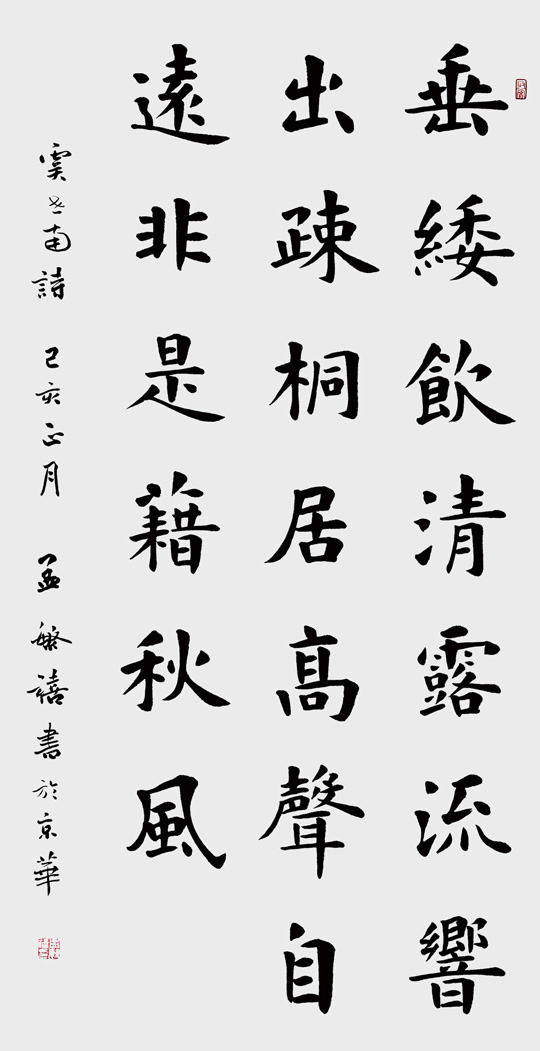 垂緌飲清露流響
出疎桐居高聲自
遠非是藉秋風
虞世南詩 己亥正月 孟繁禧書於京華